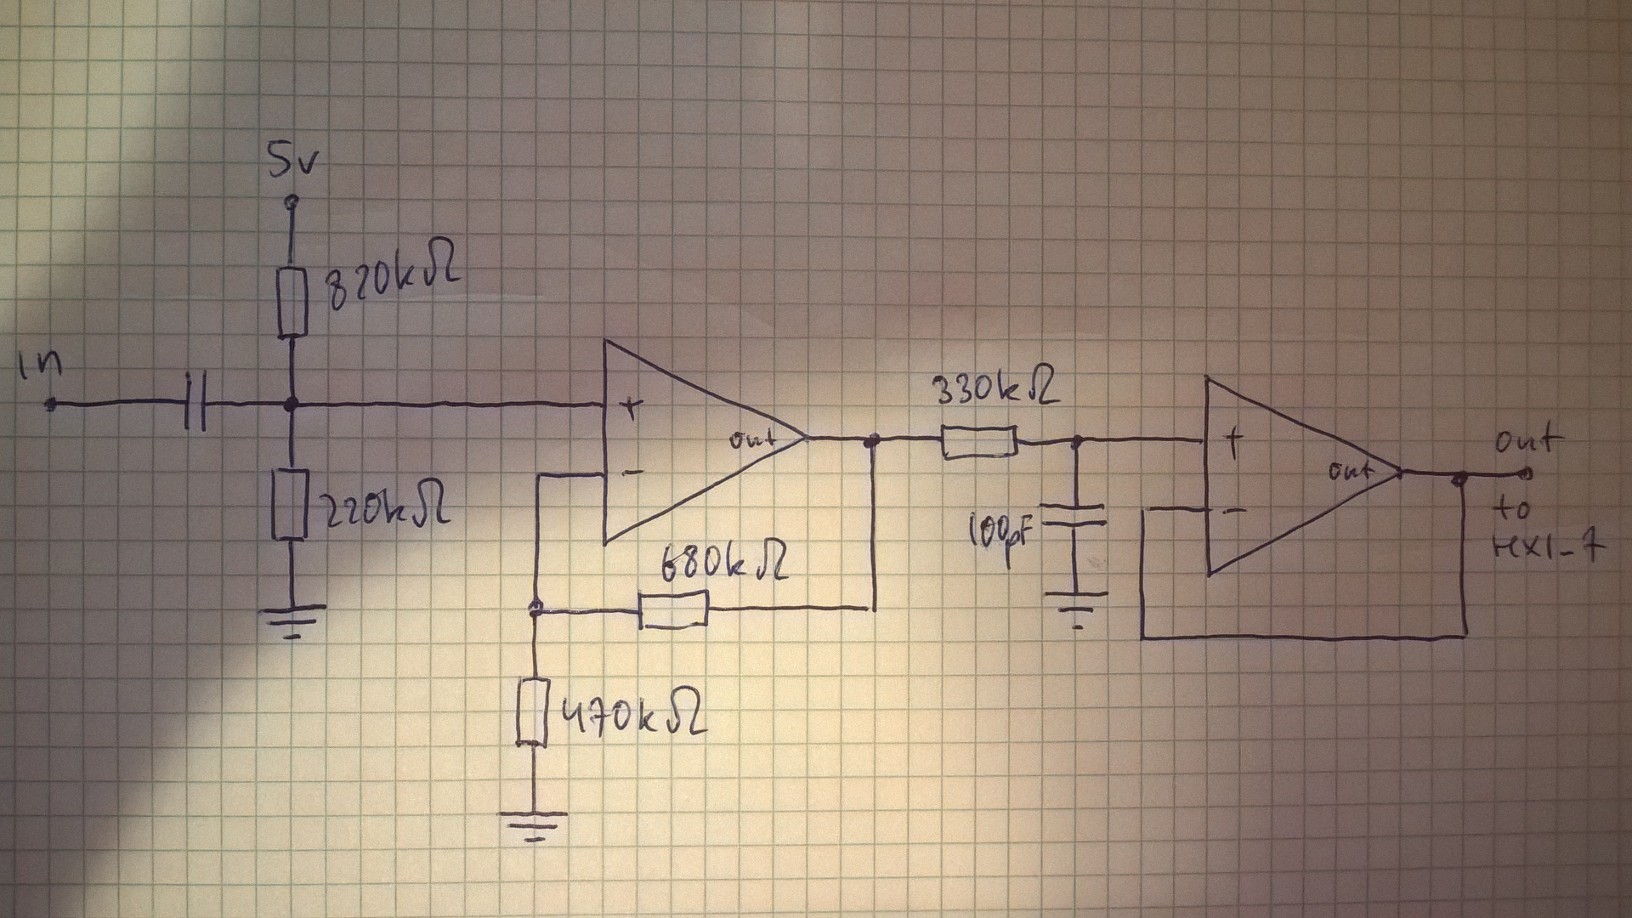 5v
820kΩ
in
+
out
-
220kΩ
680kΩ
470kΩ
330kΩ
100pF
+
out
-
out
to